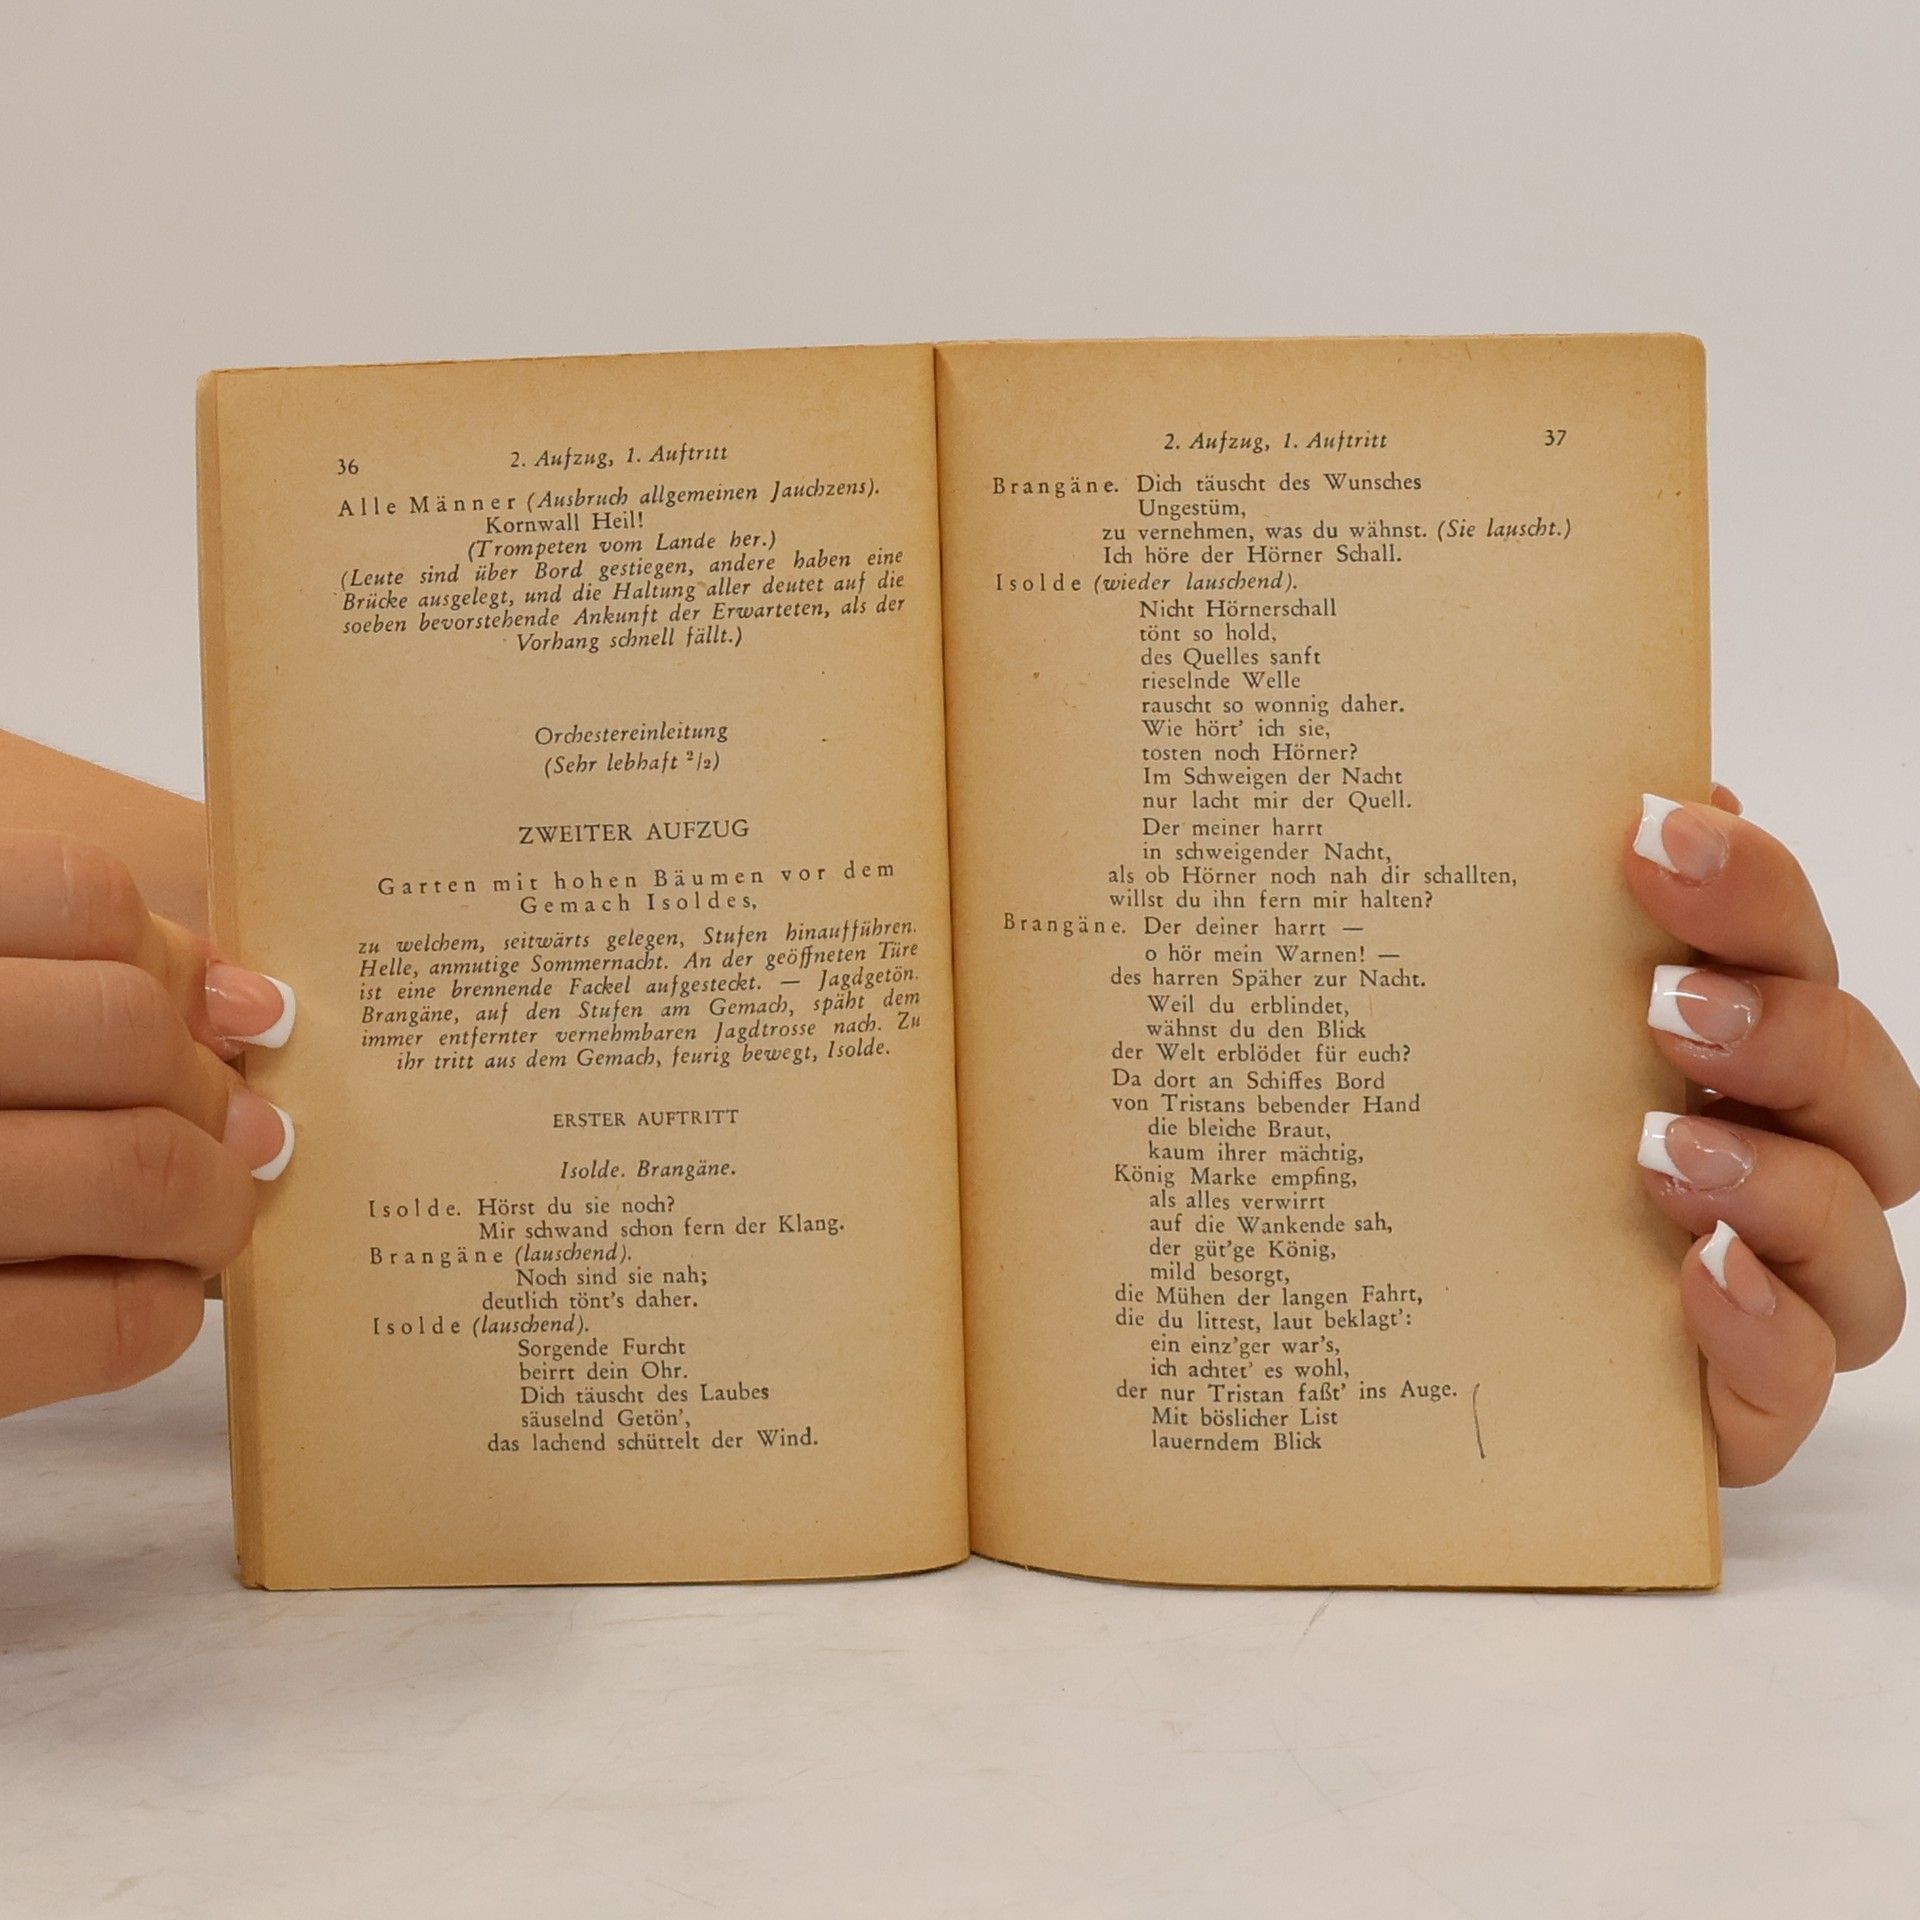 36
2. Aufzug, 1. Auftritt
Alle Männer (Ausbruch allgemeinen Jauchzens).
Kornwall Heil!
(Trompeten vom Lande her.)
(Leute sind über Bord gestiegen, andere haben eine
Brücke ausgelegt, und die Haltung aller deutet auf die
soeben bevorstehende Ankunft der Erwarteten, als der
Vorhang schnell fällt.)
Orchestereinleitung
(Sehr lebhaft ²/₂)
ZWEITER AUFZUG
Garten mit hohen Bäumen vor dem
Gemach Isoldes,
zu welchem, seitwärts gelegen, Stufen hinaufführen.
Helle, anmutige Sommernacht. An der geöffneten Türe
ist eine brennende Fackel aufgesteckt. — Jagdgetön.
Brangäne, auf den Stufen am Gemach, späht dem
immer entfernter vernehmbaren Jagdtrosse nach. Zu
ihr tritt aus dem Gemach, feurig bewegt, Isolde.
ERSTER AUFTRITT
Isolde. Brangäne.
Isolde. Hörst du sie noch?
Mir schwand schon fern der Klang.
Brangäne (lauschend).
Noch sind sie nah;
deutlich tönt's daher.
Isolde (lauschend).
Sorgende Furcht
beirrt dein Ohr.
Dich täuscht des Laubes
säuselnd Getön',
das lachend schüttelt der Wind.
2. Aufzug, 1. Auftritt
37
Brangäne. Dich täuscht des Wunsches
Ungestüm,
zu vernehmen, was du wähnst. (Sie lauscht.)
Ich höre der Hörner Schall.
Isolde (wieder lauschend).
Nicht Hörnerschall
tönt so hold,
des Quelles sanft
rieselnde Welle
rauscht so wonnig daher.
Wie hört' ich sie,
tosten noch Hörner?
Im Schweigen der Nacht
nur lacht mir der Quell.
Der meiner harrt
in schweigender Nacht,
als ob Hörner noch nah dir schallten,
willst du ihn fern mir halten?
Brangäne. Der deiner harrt —
o hör mein Warnen! —
des harren Späher zur Nacht.
Weil du erblindet,
wähnst du den Blick
der Welt erblödet für euch?
Da dort an Schiffes Bord
von Tristans bebender Hand
die bleiche Braut,
kaum ihrer mächtig,
König Marke empfing,
als alles verwirrt
auf die Wankende sah,
der güt'ge König,
mild besorgt,
die Mühen der langen Fahrt,
die du littest, laut beklagt':
ein einz'ger war's,
ich achtet' es wohl,
der nur Tristan faßt' ins Auge.
Mit böslicher List
lauerndem Blick